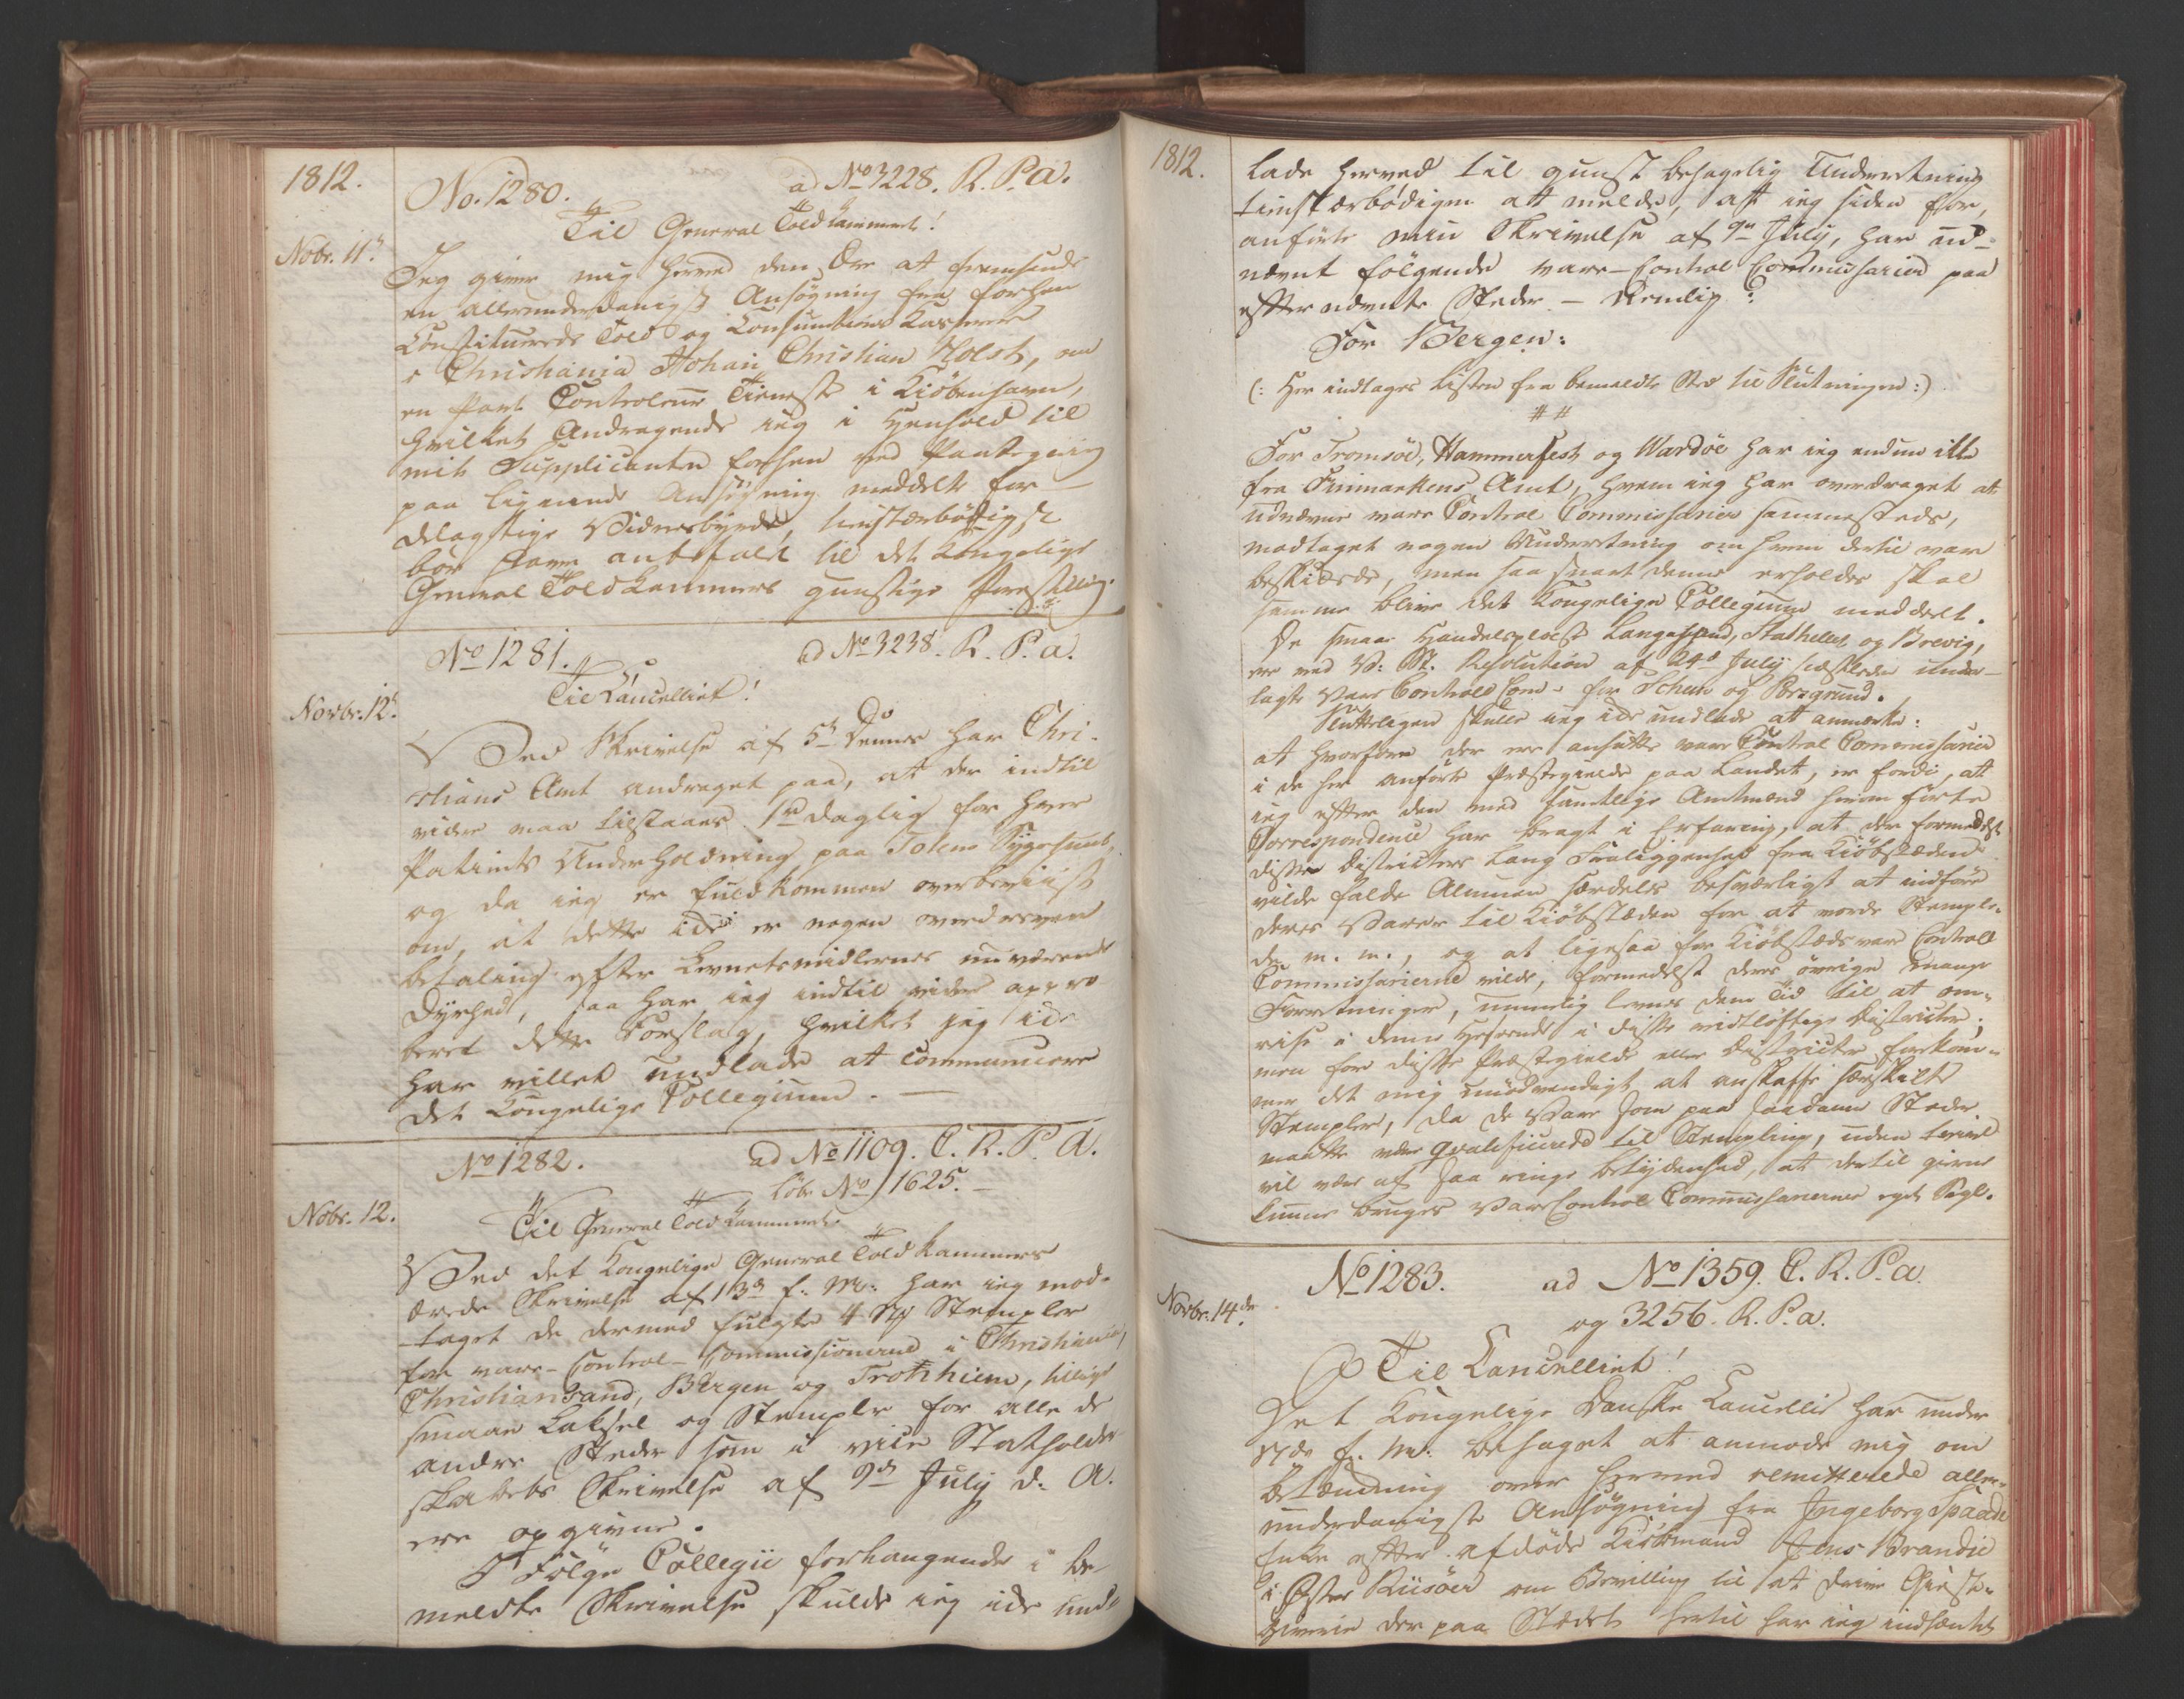 1812.
No. 1280.
ad No 3228. R. P. a.
Til General Toldkammeret!
Nobr. 11t
Jeg giver mig herved den Ære at fremsende
en allerunderdanigst Ansøgning fra forhen
Constituerede Told og Consumtions Casserer
i Christiania Johan Christian Holst, om
en Post Controleur Tieneste i Kiøbenhavn,
hvilket Andragende ieg i Henhold til
mit Supplicanten forhen ved Paategning
paa lignende Ansøgning meddelte for
delagtige Vidnesbyrde, tienstærbødigst
bør have anbefalet til det Kongelige
General Toldkammers gunstige Forestilling.
No 1281.
ad No 3238. R. P. a.
Til Cancelliet!
Novbr. 12t
Ved Skrivelse af 5t Dennes har Chri-
stians Amt andraget paa, at der indtil
videre maa tilstaaes 1 rd daglig for hver
Patients Underholdning paa Totens Sygehuus,
og da ieg er fuldkommen overbeviist
om, at dette icke er nogen overdreven
betaling efter Levnetsmidlernes nuværende
Dyrhed, saa har ieg indtil videre appro-
beret dette Forslag, hvilket jeg icke
har villet undlade at communicere
det Kongelige Collegium. —
No 1282.
ad No 1109. C. R. P. A.
Løbe No 1625. —
Nobr. 12.
Til General Toldkammeret.
Ved det Kongelige General Toldkammers
ærede Skrivelse af 13de f. M. har ieg mod-
taget de dermed fulgte 4 Stempler
for vare-Control-Commissionerne i Christiania,
Christiansand, Bergen og Trothiem, tillige
smaae Laksel og Stempler for alle de
andre Steder som i vice Statholder-
skabets Skrivelse af 9de July d. A.
ere opgivne.
I Følge Collegii forlangende i be-
meldte Skrivelse skulde ieg icke und-
1812.
lade herved til gunst behagelig Underretning
tienstærbødigen at melde, at ieg siden for-
anførte min Skrivelse af 9de July, har ud-
nævnt følgende vare-Control Commissarier paa
efternævnte Steder — Nemlig:
For Bergen:
(: Her indtages Listen fra bemeldte Sted til Slutningen :)
##
For Tromsöe, Hammerfest og Wardöe har ieg endnu ikke
fra Finmarkens Amt, hvem ieg har overdraget at
udnævne vare Control Commissarier sammesteds,
modtaget nogen Underretning om hvem dertil var
beskikkede, men saa snart denne erholdes skal
samme blive det Kongelige Collegium meddelt.
De smaae Handelspladse Langesund, Stathelle, og Brevig,
ere ved V: St. Resolution af 24de July sidstleden under-
lagte Vare Controll Com- for Schien og Porsgrund.
Slutteligen skulle ieg icke undlade at anmærke:
at hvorfore der ere ansatte vare Control Commissarier
i de her anførte Præstegielde paa Landet, er fordi, at
ieg efter den med samtlige Amtmænd herom førte
Correspondence har bragt i Erfaring, at der formedelst
disse Districters lang Fraliggenhed fra Kiøbstæden
vilde falde Almuen særdeles besværligt at indføre
deres Varer til Kiøbstæden for at vorde Stemple-
de m. m., og at ligesaa for Kiøbstæds vare Controll
Commissarierne vilde, formedelst deres øvrige mange
Forretninger, umuelig levnes dem Tid til at om-
reise i denne Hesende i disse vidtløftige Districter;
men for disse Præstegielde eller Districter forekom-
mer det mig unødvendigt at anskaffe særskilte
Stempler, da de Vare som paa saadanne Stæder
maatte være qvalificerede til Stempling, uden tvivl
vil være af saa ringe betydenhed, at dertil gierne
kunne bruges Vare Control Commissariernes eget Segl.
No 1283.
ad No 1359. C. R. P. a.
og 3256. R. P. a.
Novbr. 14de
Til Cancelliet!
Det Kongelige Danske Cancellie har under
17de f. M. behaget at anmode mig om
Betænkning over hermed remitterede aller-
underdanigste Ansøgning fra Ingeborg Spaade
Enke efter afdøde Kiøbmand Jens Brandie
i Øster Riisöer om Bevilling til at drive Gieste-
giverie der paa Stædet hertil har ieg indhæntet